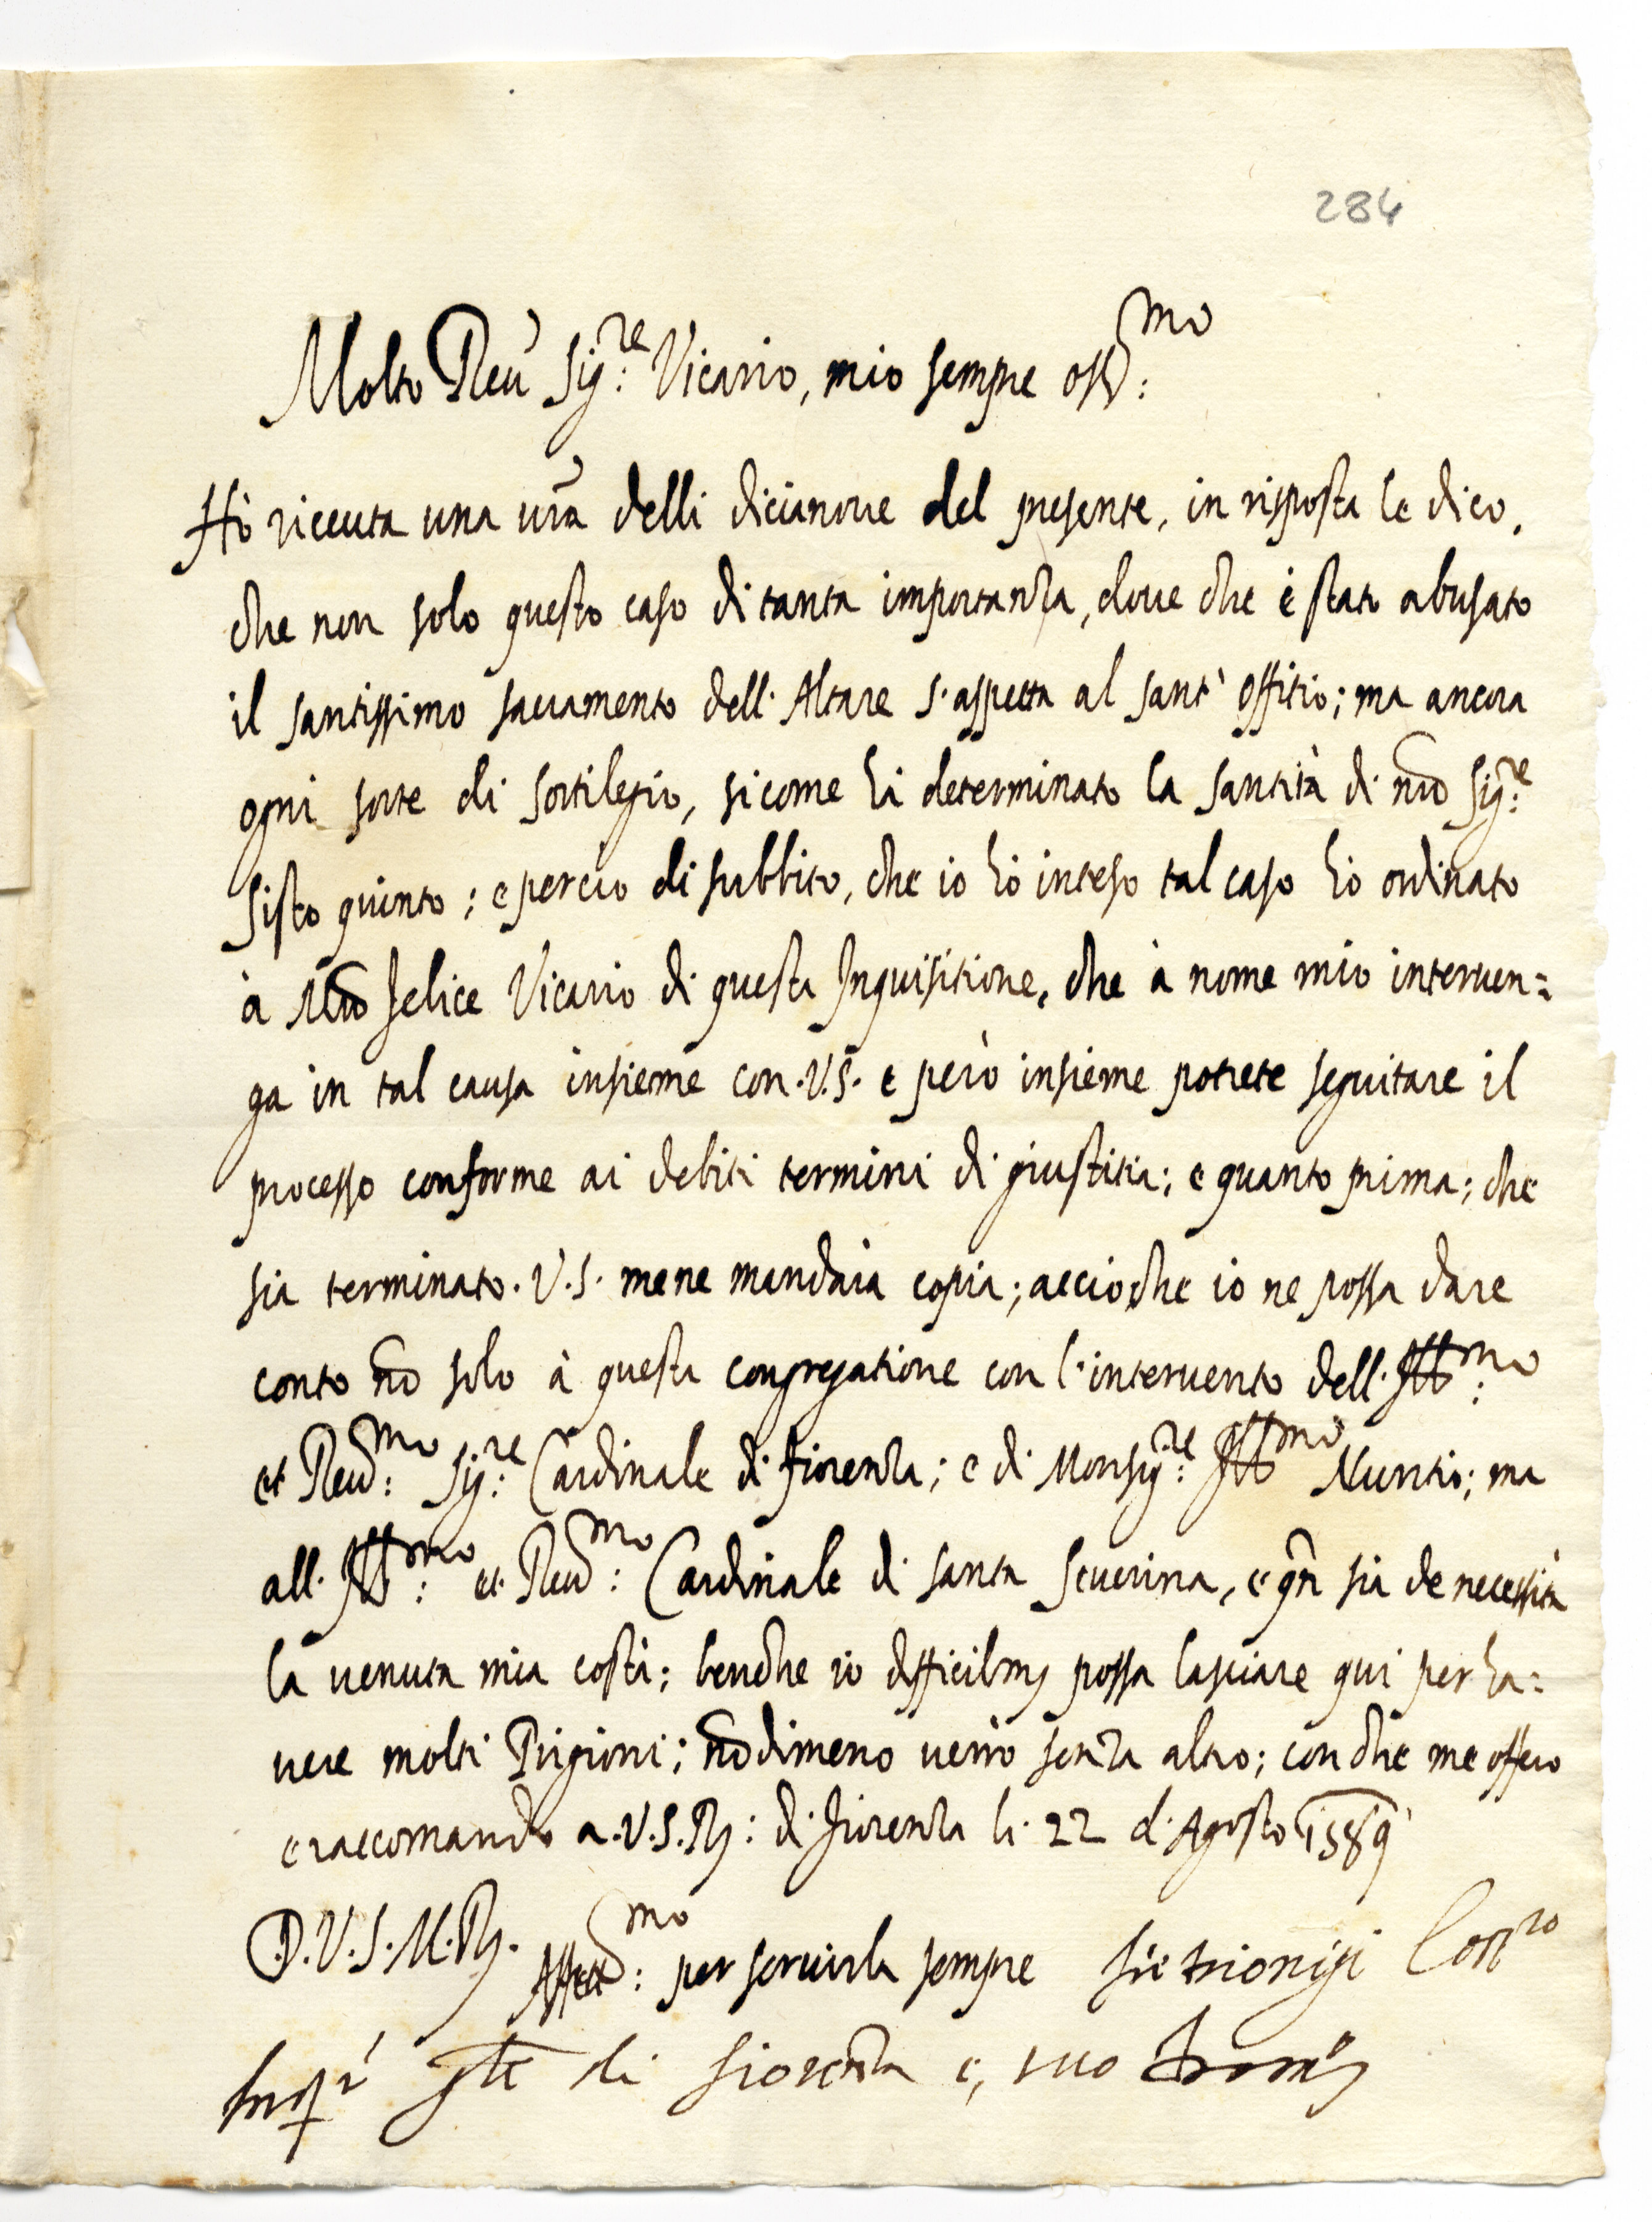 284
Molto Reu Sig:re Vicario, mio sempre oss:mo
Hò riceuta una ura delli dicianoue del presente, in risposta le dico,
che non solo questo caso di tanta importanza, doue che è stato abusato
il santissimo sacramento dell'Altare s'aspetta al sant'Offitio; ma ancora
ogni sorte di sortilegio, sicome hà determinato la santità di nro Sig:re
Sisto quinto; e perciò di subbito, che io hò inteso tal caso hò ordinato
à Mro felice Vicario di questa Inquisitione, che à nome mio interuen=
ga in tal causa insieme con .V.S. e però insieme potrete seguitare il
processo conforme ai debiti termini di giustitia; e quanto prima; che
sia terminato .V.S. mene mandarà copia; accioche io ne possa dare
conto nò solo à questa congregatione con l'interuento dell'Ill:mo
et Reud:mo Sig:re Cardinale di fiorenza; e di Monsig:re Ill:mo Nuntio; ma
all'Ill:mo et Reud:mo Cardinale di santa Seuerina, e qn sia de necessità
la uenuta mia costì; benche io difficilm possa lasciare qui per ha=
uere molti Prigioni; nòdimeno uerrò senza altro; con che me offero
e raccomando a .V.S.R: di fiorenza li 22 d'Agosto 1589
D.V.S.M.R. Affett:mo per seruirla sempre
Inqr gle di fiorenza e, suo